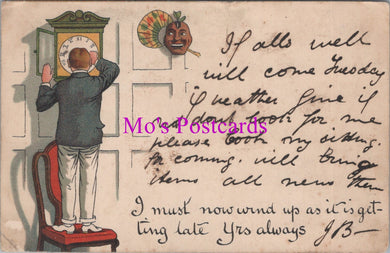 If alls well
will come Tuesday
if weather fine if
not dont look for me
please
coming. will bring
items all news then
I must now wind up as it is get-
ting late Yrs always JB-
Mo's Postcards